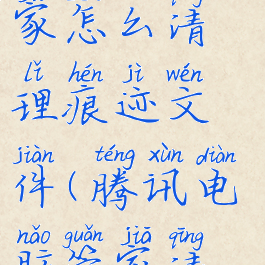 家怎么清
lǐ hén jì wén
理痕迹文
jiàn téng xùn diàn
件(腾讯电
nǎo guǎn jiā qīng
脑管家清